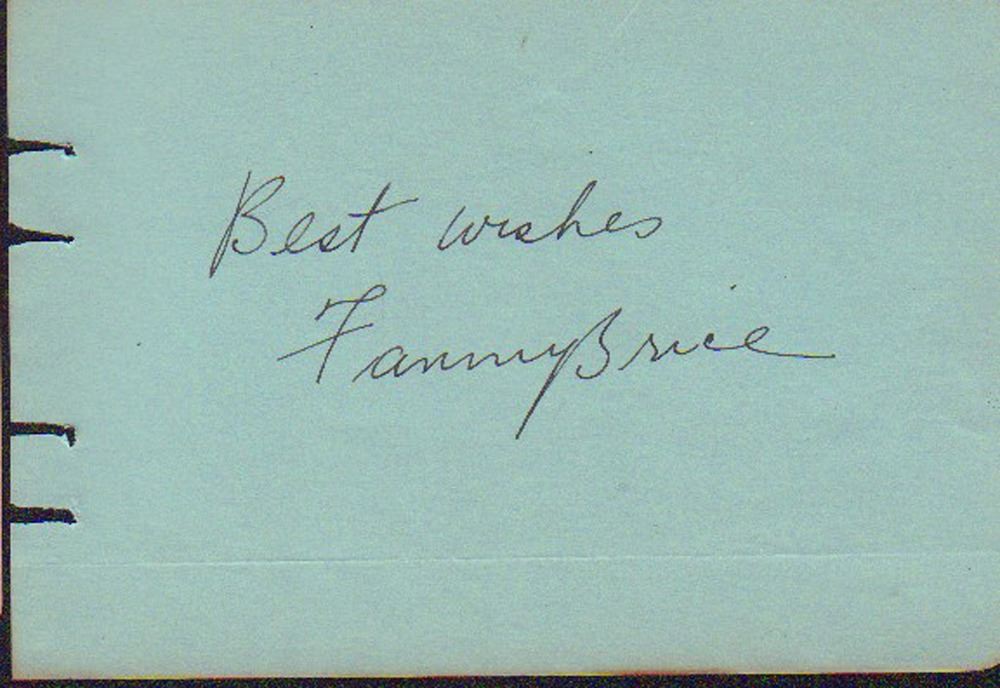 Best wishes
Fanny Brice